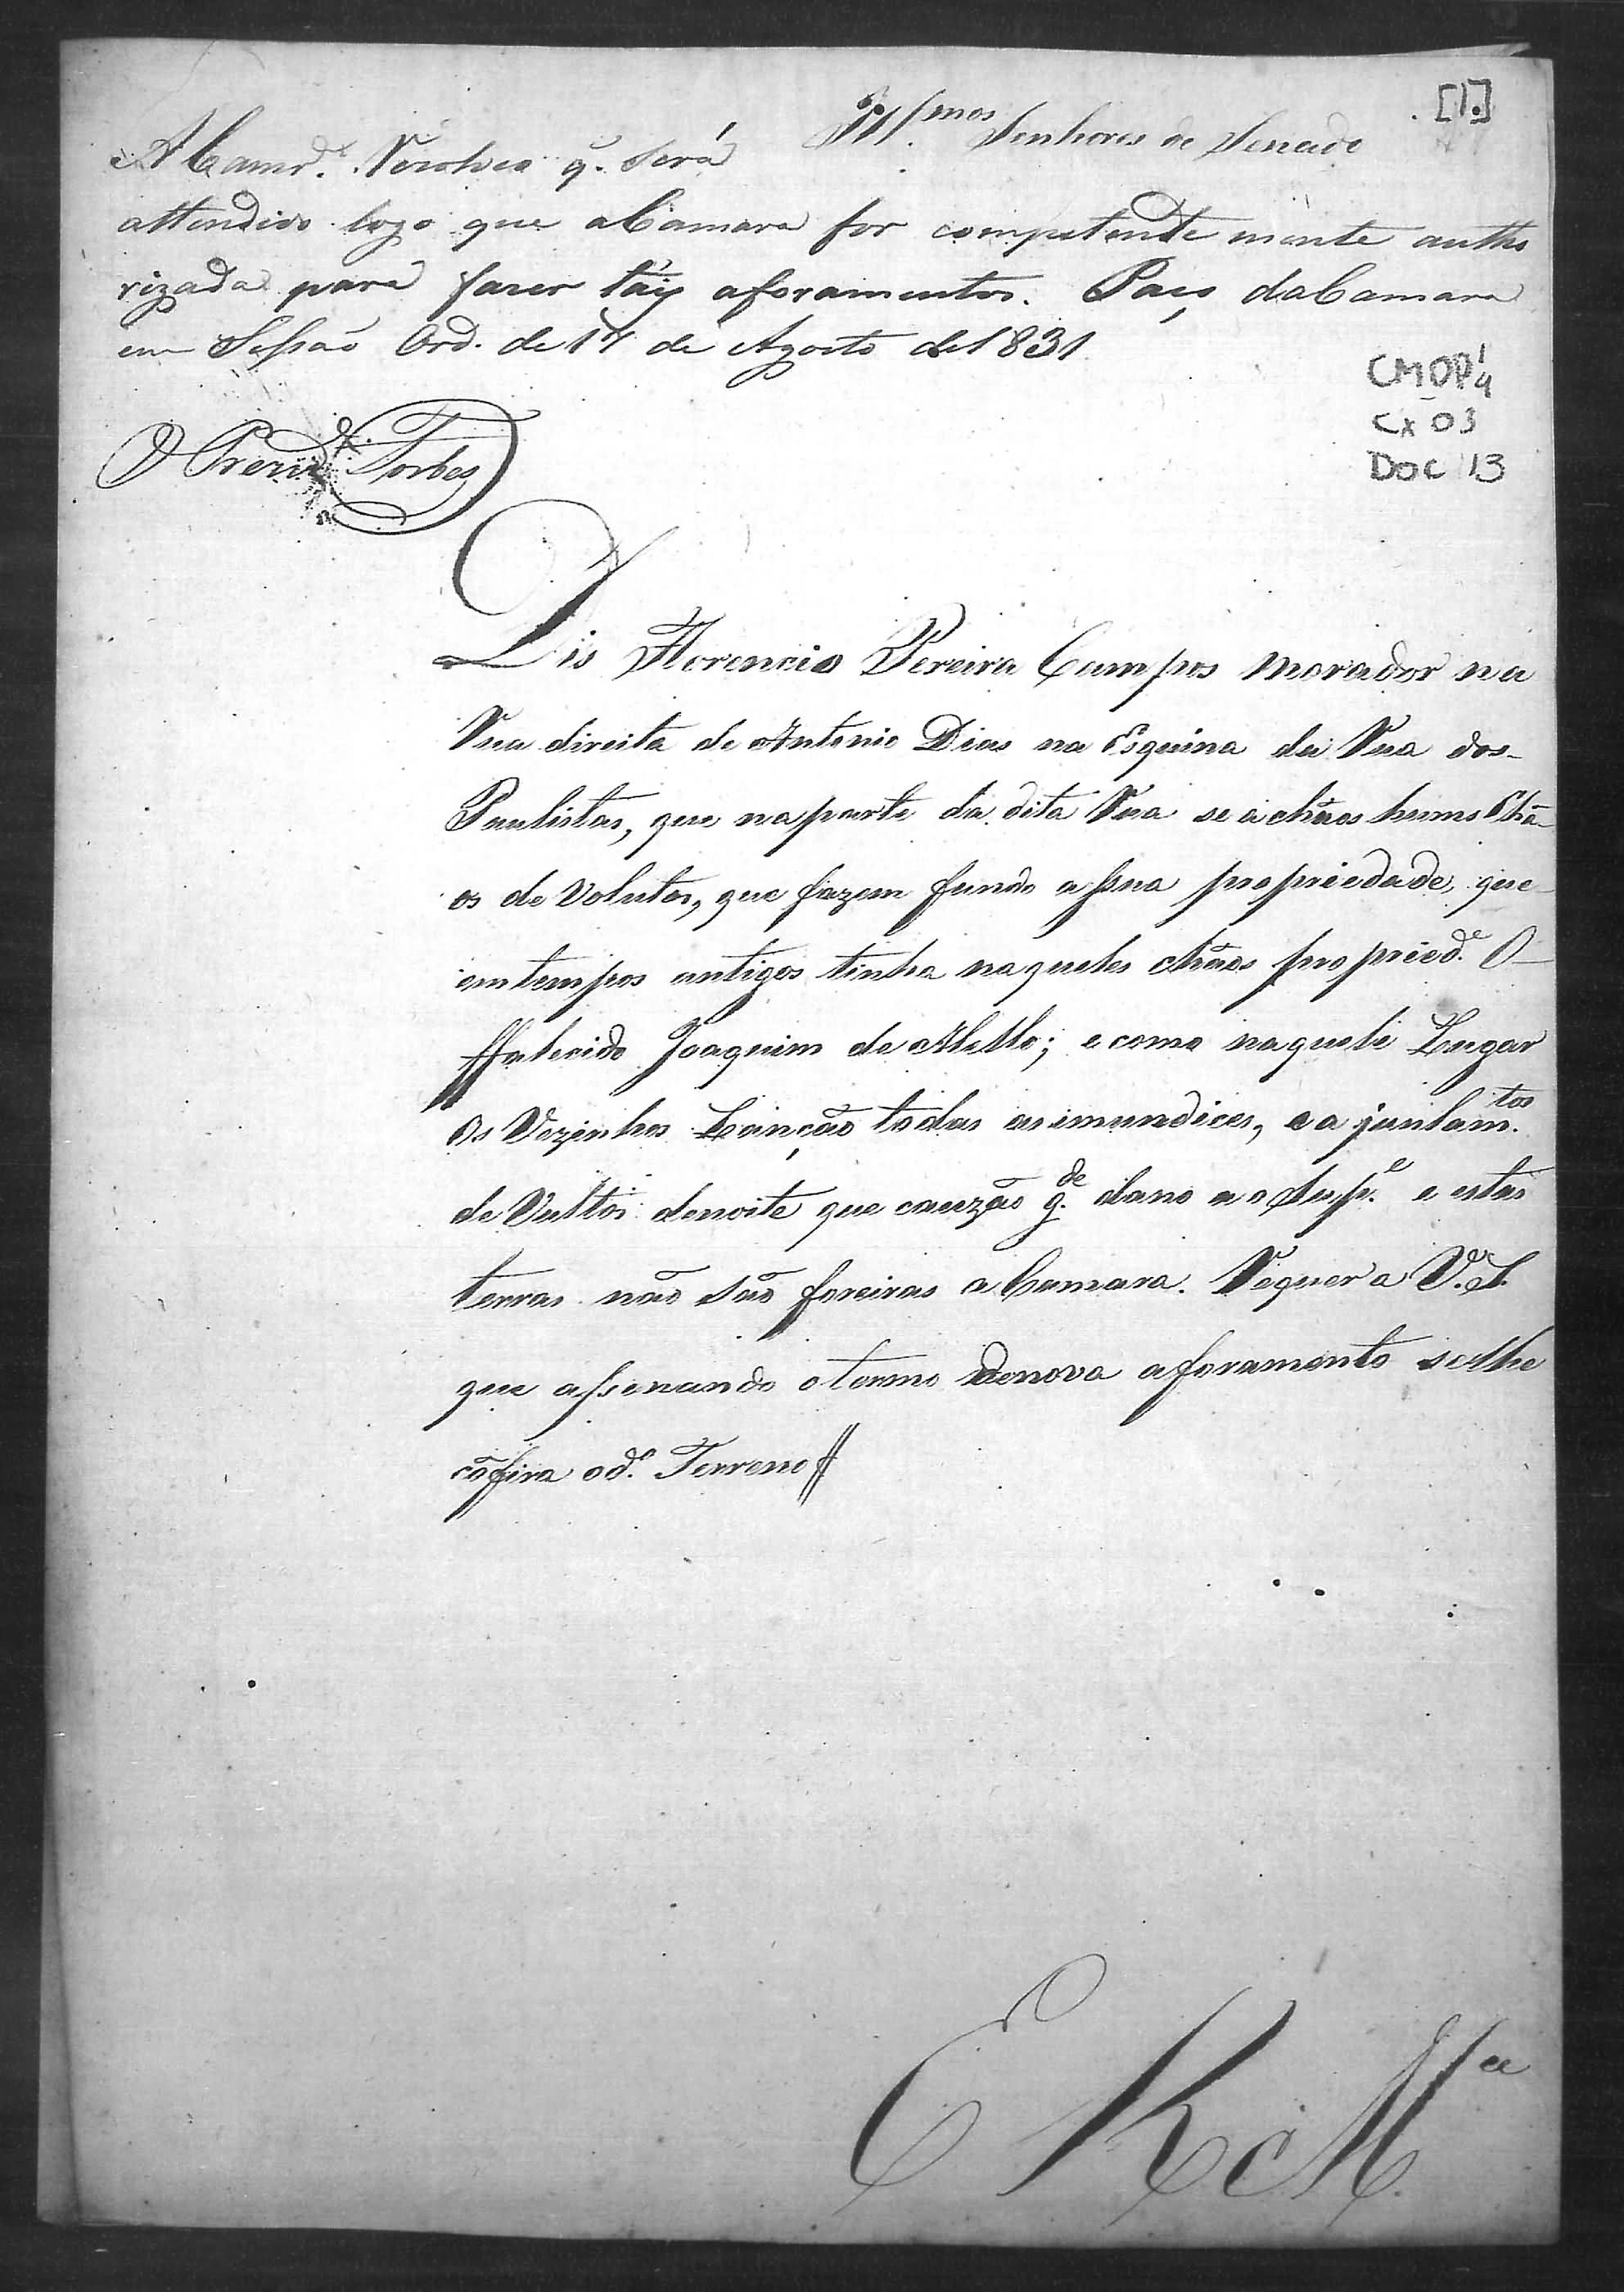 [1.]
Ill.mos Senhores do Senado
A Camr.ª Rezolveo q. Será
attendido logo que a Camara for competente mente autho
rizada para fazer táis aforamentos. Paço da Camara
em Sessaõ Ord. de 17 de Agosto de 1831
CMOP 1/4
CX 03
DOC 13
O Prezid.e Forbes
Dis Florencio Pereira Campos morador na
Rua direita de Antonio Dias na Esquina da Rua dos
Paulistas, que na parte da dita Rua se achaõs huns Cha-
os de Volutos, que fazem fundo a sua propriedade, que
em tempos antigos tinha naqueles chaõs propried.e O
ffalecido Joaquim de Mello; e como naquele Lugar
Os Vezinhos Lançaõ todas as imundices, e ajuntam.tos
de Vultos denoite que cauzaõ g.de dano ao Sup.e e estas
terras naõ saõ foreiras a Camara. Requer a V.S.
que assenando o termo denovo aforamento se lhe
cõfira o d.o Terreno
E R M.ce